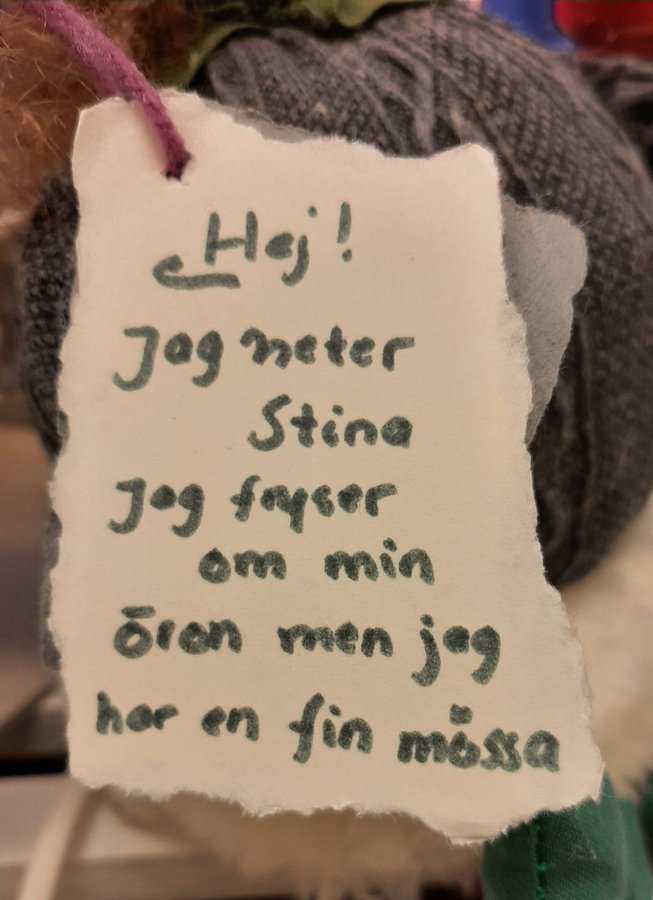 Hej!
Jag heter
Stina
Jag fryser
om min
öron men jag
har en fin mössa